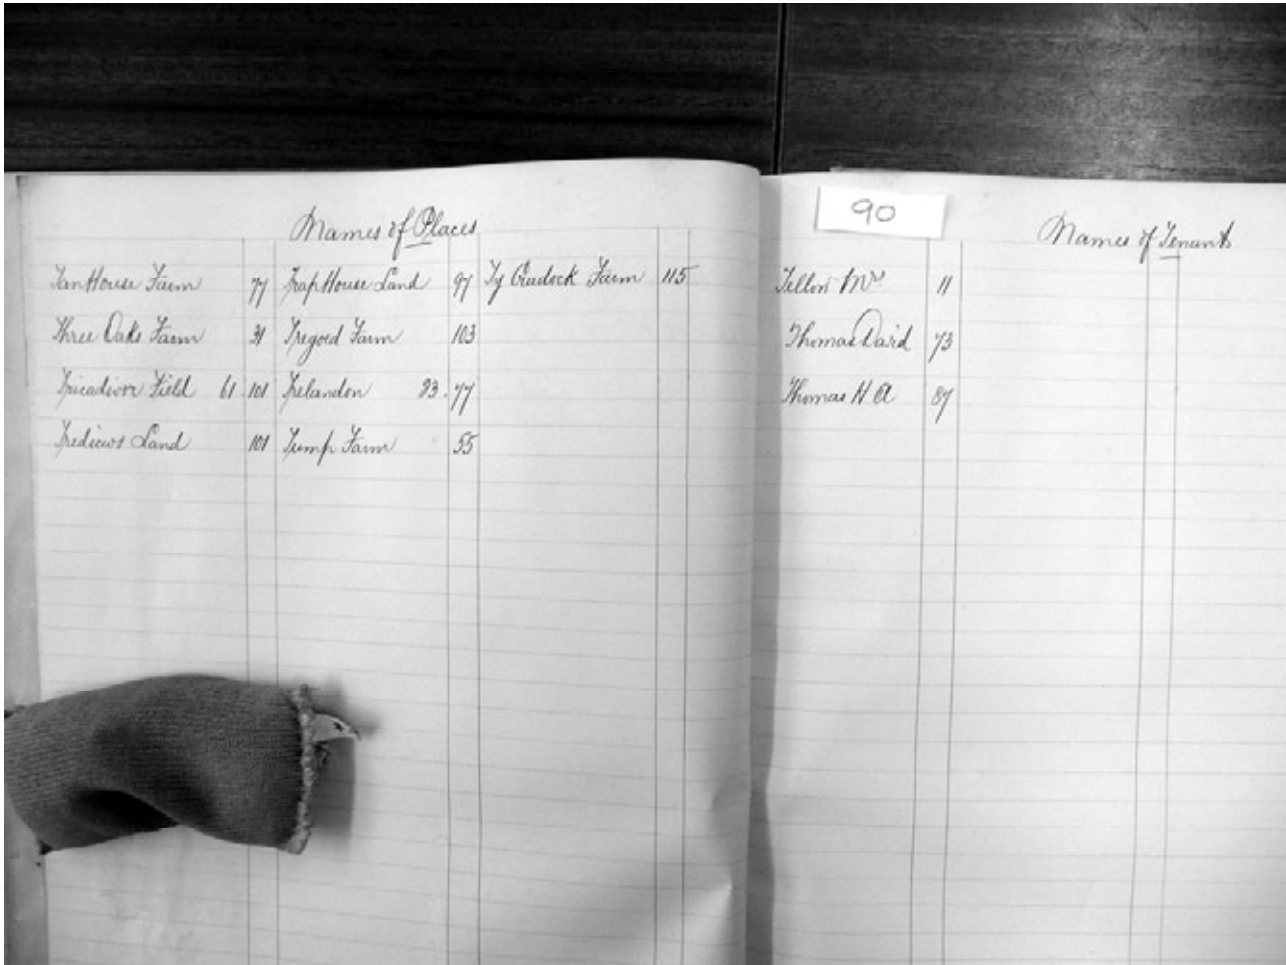 Names of Places
TanHouse Farm 77 TrapHouse Land 97 Ty Cradock Farm 115
Three Oaks Farm 31 Tregoed Farm 103
Field 61.101 Trelandon 23.77
Land 101 Tump Farm 55
90
Names of Tenants
11
Thomas David 73
Thomas H A 87